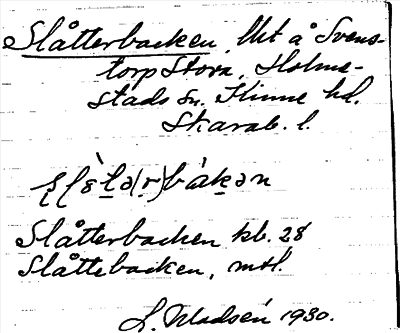 Slåtterbacken, Mt å Svens-
torp Stora, Holme-
stads sn. Kinne hd.
Skarab. l.
Slåtterbacken kb. 28
Slåttebacken, mtl.
1930.